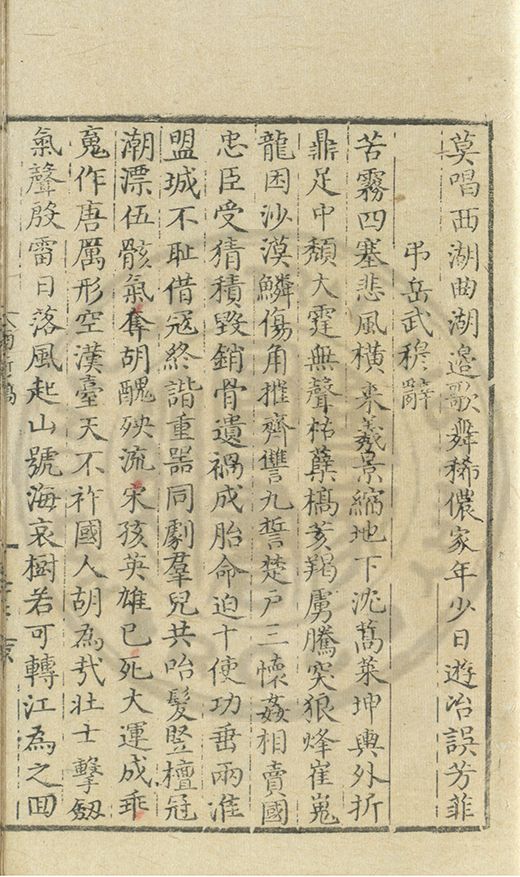 莫唱西湖曲湖邉歌舞稀儂家年少日遊冶誤芳菲
弔岳武穆辭
苦霧四塞悲風橫来羲景縮地下沈蒿萊坤輿外折
鼎足中頽大霆無聲枯蘖槁荄羯虜騰突狼烽崔嵬
龍困沙漠鱗傷角摧齊讐九誓楚戸三懷姦相賣國
忠臣受猜積毀銷骨遺禍成胎命迫十使功垂兩淮
盟城不耻借寇終諧重器同劇羣兒共咍髮竪檀冠
潮漂伍骸氣奪胡醜殃流宋孩英雄已死大運成乖
鬼作唐厲形空漢臺天不祚國人胡為㢤壮士擊劔
氣聲殷雷日落風起山號海哀樹若可轉江為之回